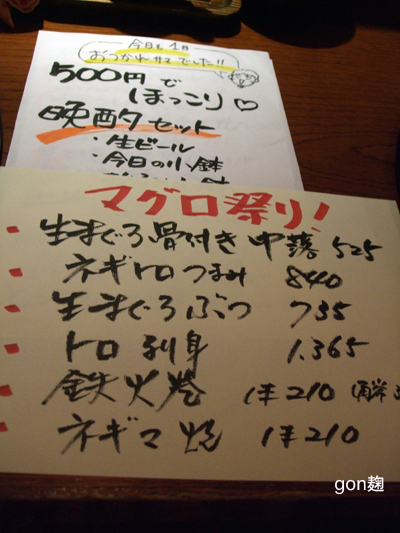 今日も1日
おつかれサマでした!!
500円で
ほっこり♡
晩酌セット
・生ビール
・今日の小鉢
マグロ祭り!
生まぐろ骨付き中落 525
ネギトロつまみ 840
生まぐろぶつ 735
トロ刺身 1.365
鉄火巻 1本210
ネギマ焼 1本210
gon麹